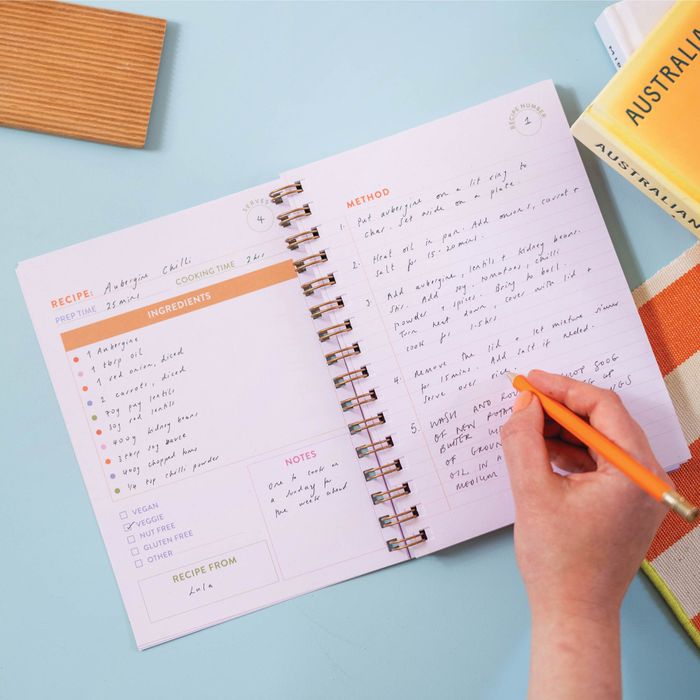 SERVES
4
RECIPE: Aubergine Chilli
PREP TIME 25 mins COOKING TIME 2 hrs
INGREDIENTS
1 Aubergine
1 tbsp oil
1 red onion, diced
2 carrots, diced
70g puy lentils
30g red lentils
400g kidney beans
3 tbsp soy sauce
400g chopped toms
1/4 tsp chilli powder
VEGAN
VEGGIE
NUT FREE
GLUTEN FREE
OTHER
NOTES
One to cook on
a Sunday for
the week ahead
RECIPE FROM
Lula
RECIPE NUMBER
1
METHOD
1. Put aubergine on a lit ring to
char. Set aside on a plate.
2. Heat oil in pan. Add onions, carrot +
salt for 15-20 mins.
3. Add aubergine, lentils + kidney beans.
Stir. Add soy, tomatoes, chilli
powder + spices. Bring to boil.
Turn heat down, cover with lid +
cook for 1.5hrs
4. Remove the lid + let mixture simmer
for 15 mins. Add salt if needed.
Serve over rice.
5. WASH AND 500G
OF NEW UP
BUTTER
OF GROUN
OIL. IN A
MEDIUM
AUSTRALIA
AUSTRALIAN